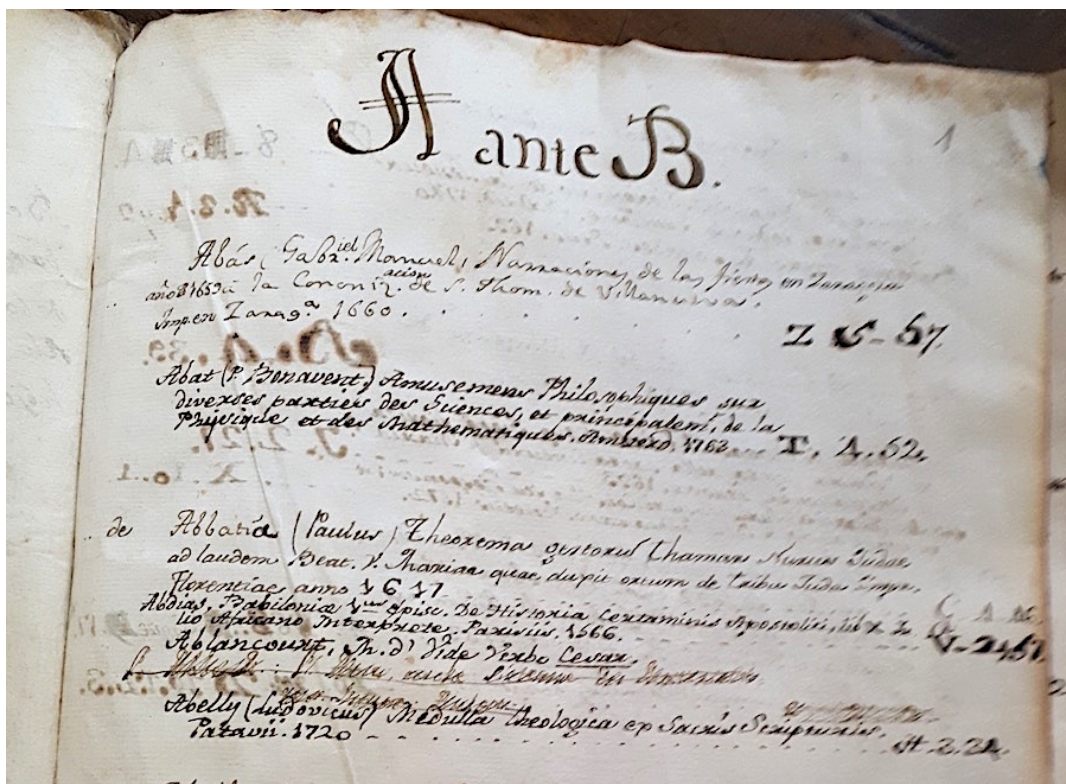 A ante B.
1
Abás (Gabriel Manuel) Narraciones de las fiestas en Zaragoza
año 1659 à la Canoniz.acion de S. Thom. de Villanueva.
Imp. en Zarag.a 1660.
Z 5-67.
Abat (P. Bonavent.) Amusemens Philosophiques sur
diverses parties des Sciences, et principalem.t de la
Physique et des Mathematiques. Amsterd. 1763 T. 4.62.
de Abbatia (Paulus) Theorema gestorum Thamar Nurus Judae
ad laudem Beat. V. Mariae quae
ortum de tribu Juda Impr.
Florentiae anno 1617
Abdias, Babiloniæ Episc. De Historia Certaminis Apostolici, lib X
lio Africano Interprete. Parisiis. 1566. V-2451
Ablancourt, N. d' Vide Verbo Cesar.
Abelly (Ludovicus) Medulla Theologica ex Sacris Scripturis.
Patavii. 1720 H.2.22.